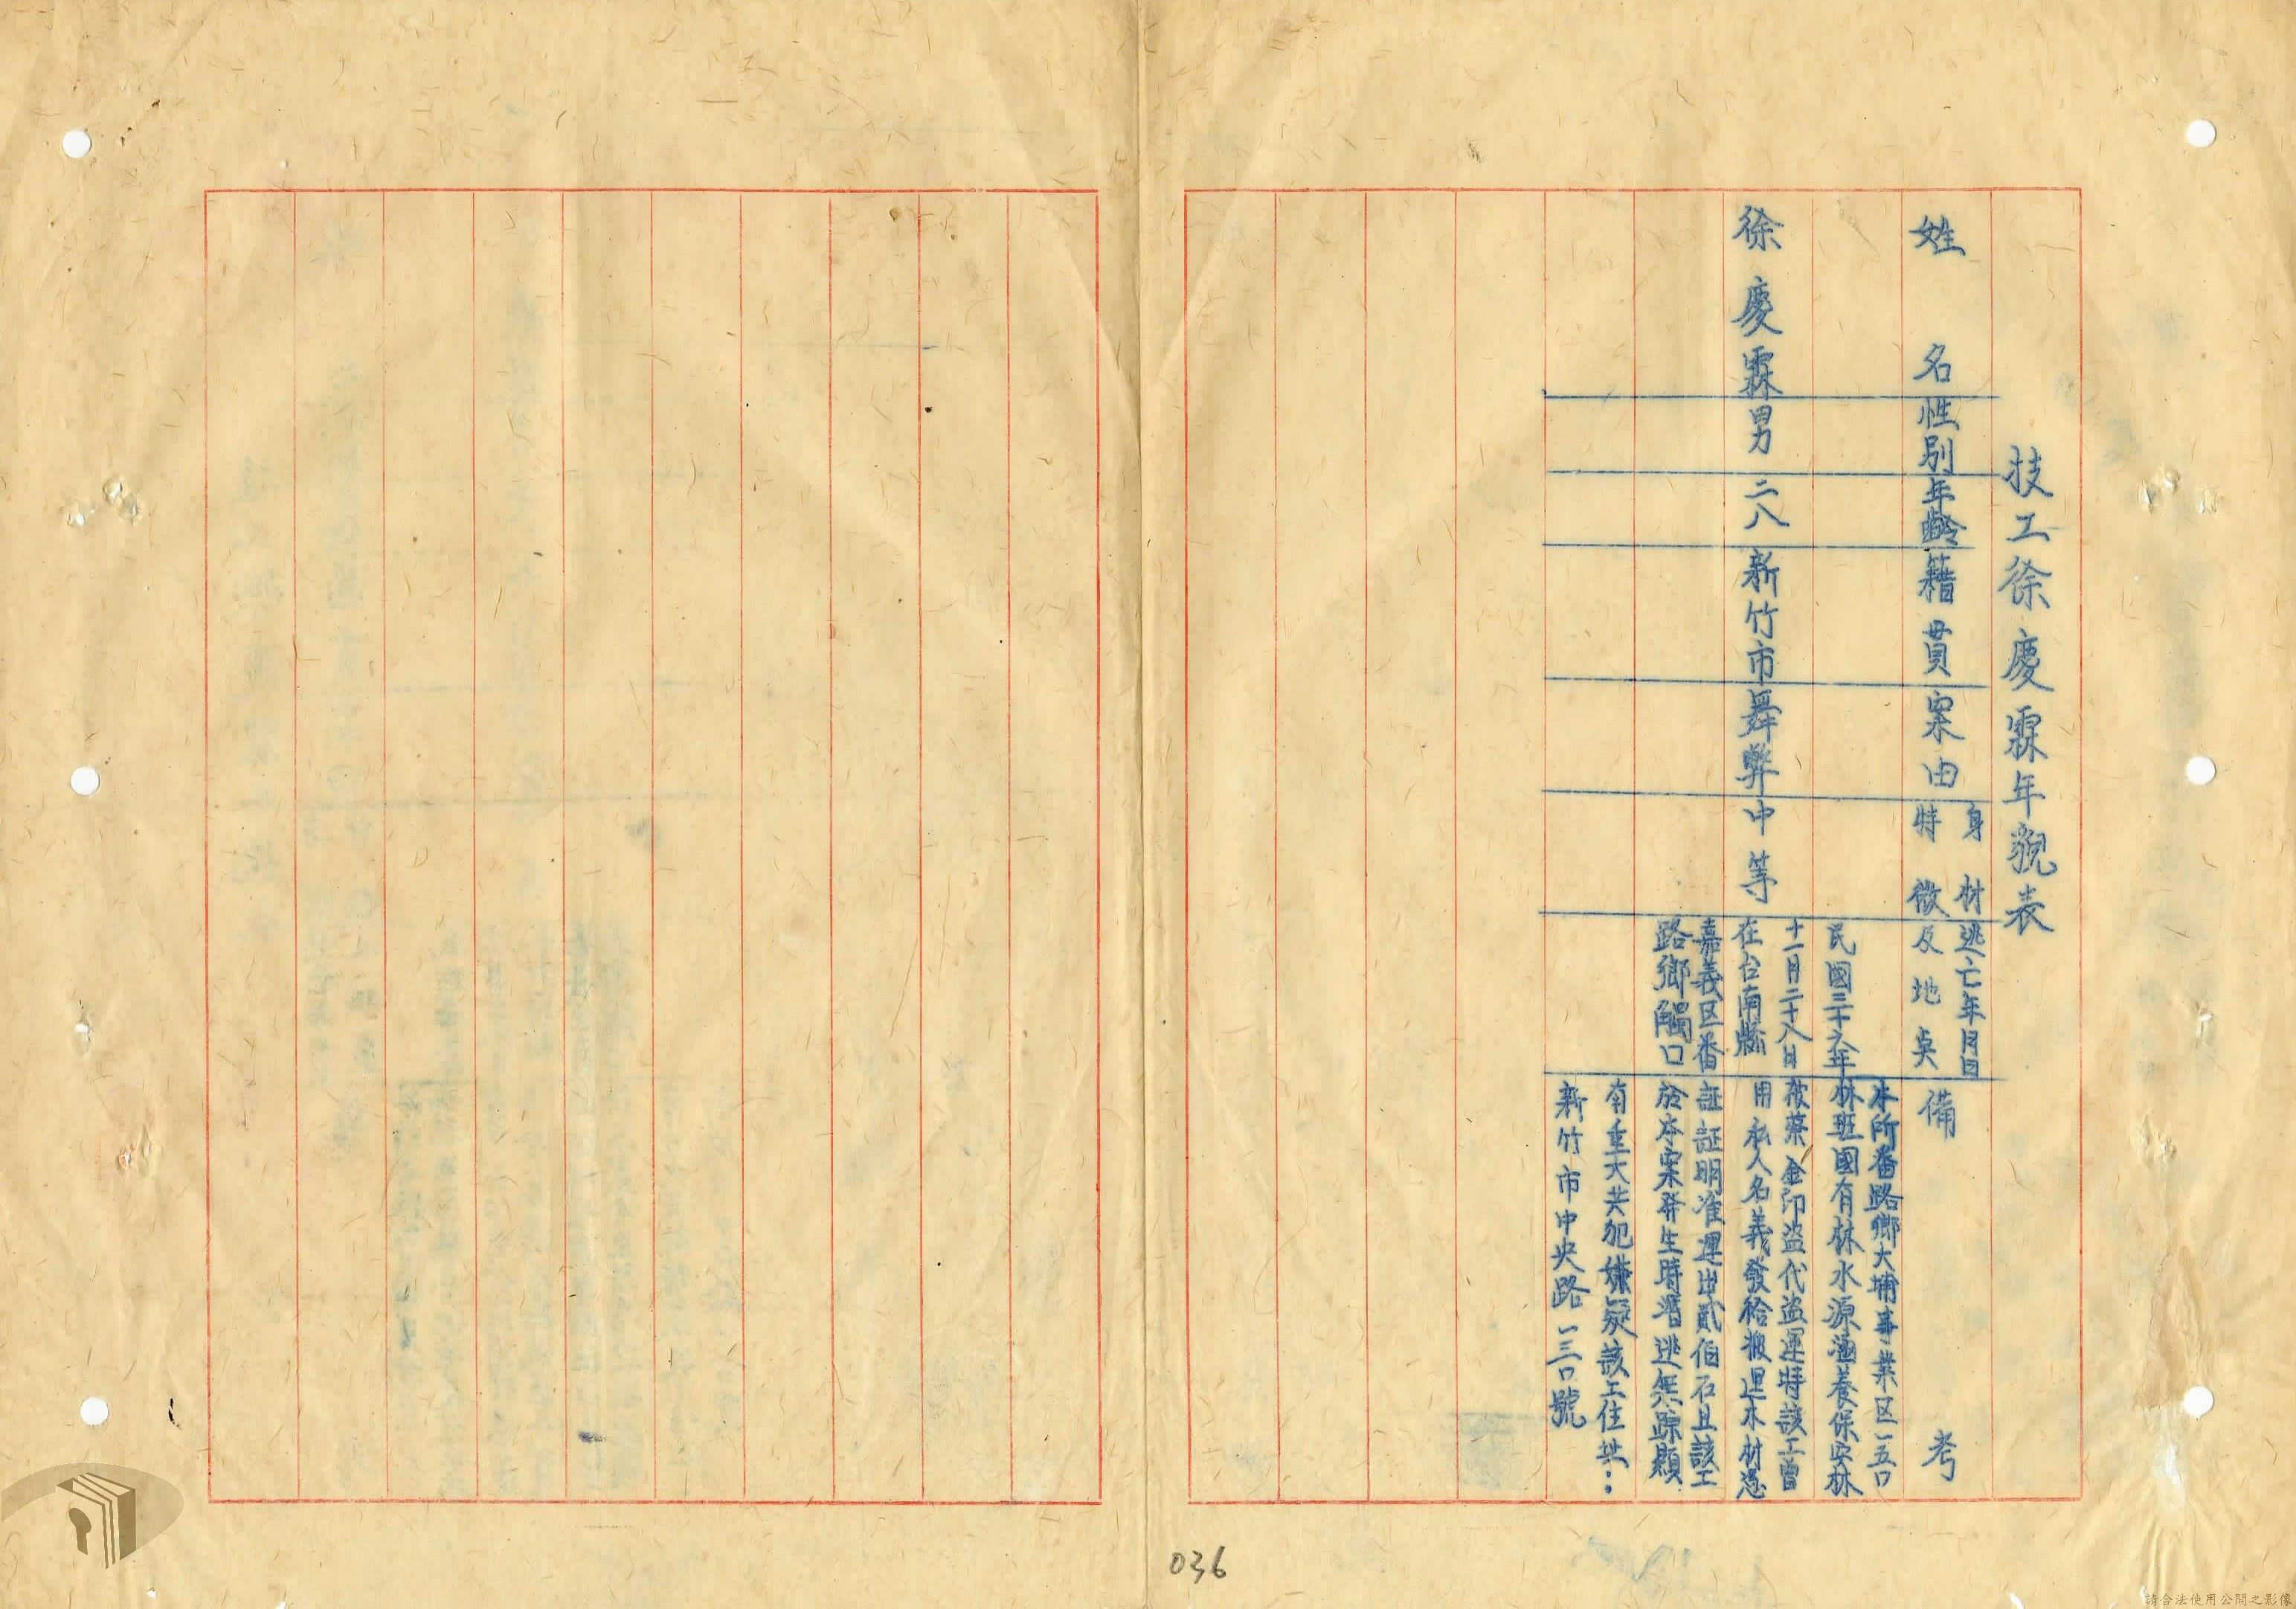 技工徐慶霖年貌表
姓名
性別
年齡
籍貫
案由
身材
特徵
逃亡年月日
及地奌
備考
徐慶霖
男
二八
新竹市
舞弊
中等
民國三十六年
十一月二十八日
在台南縣
嘉義区番
路鄉觸口
本所番路鄉大埔事業区一五〇
林班國有林水源涵養保安林
被蔡金印盜代盜運時該工曾
用私人名義發給搬運木材憑
証証明准運出貳佰石且該工
於本案發生時潛逃無踪顯
有重大共犯嫌疑該工住址：
新竹市中央路一三〇號
036
請合法使用公開之影像